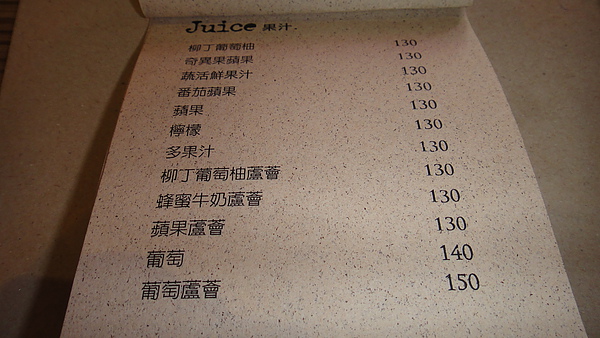 Juice 果汁.
柳丁葡萄柚 130
奇異果蘋果 130
蔬活鮮果汁 130
番茄蘋果 130
蘋果 130
檸檬 130
多果汁 130
柳丁葡萄柚蘆薈 130
蜂蜜牛奶蘆薈 130
蘋果蘆薈 130
葡萄 140
葡萄蘆薈 150